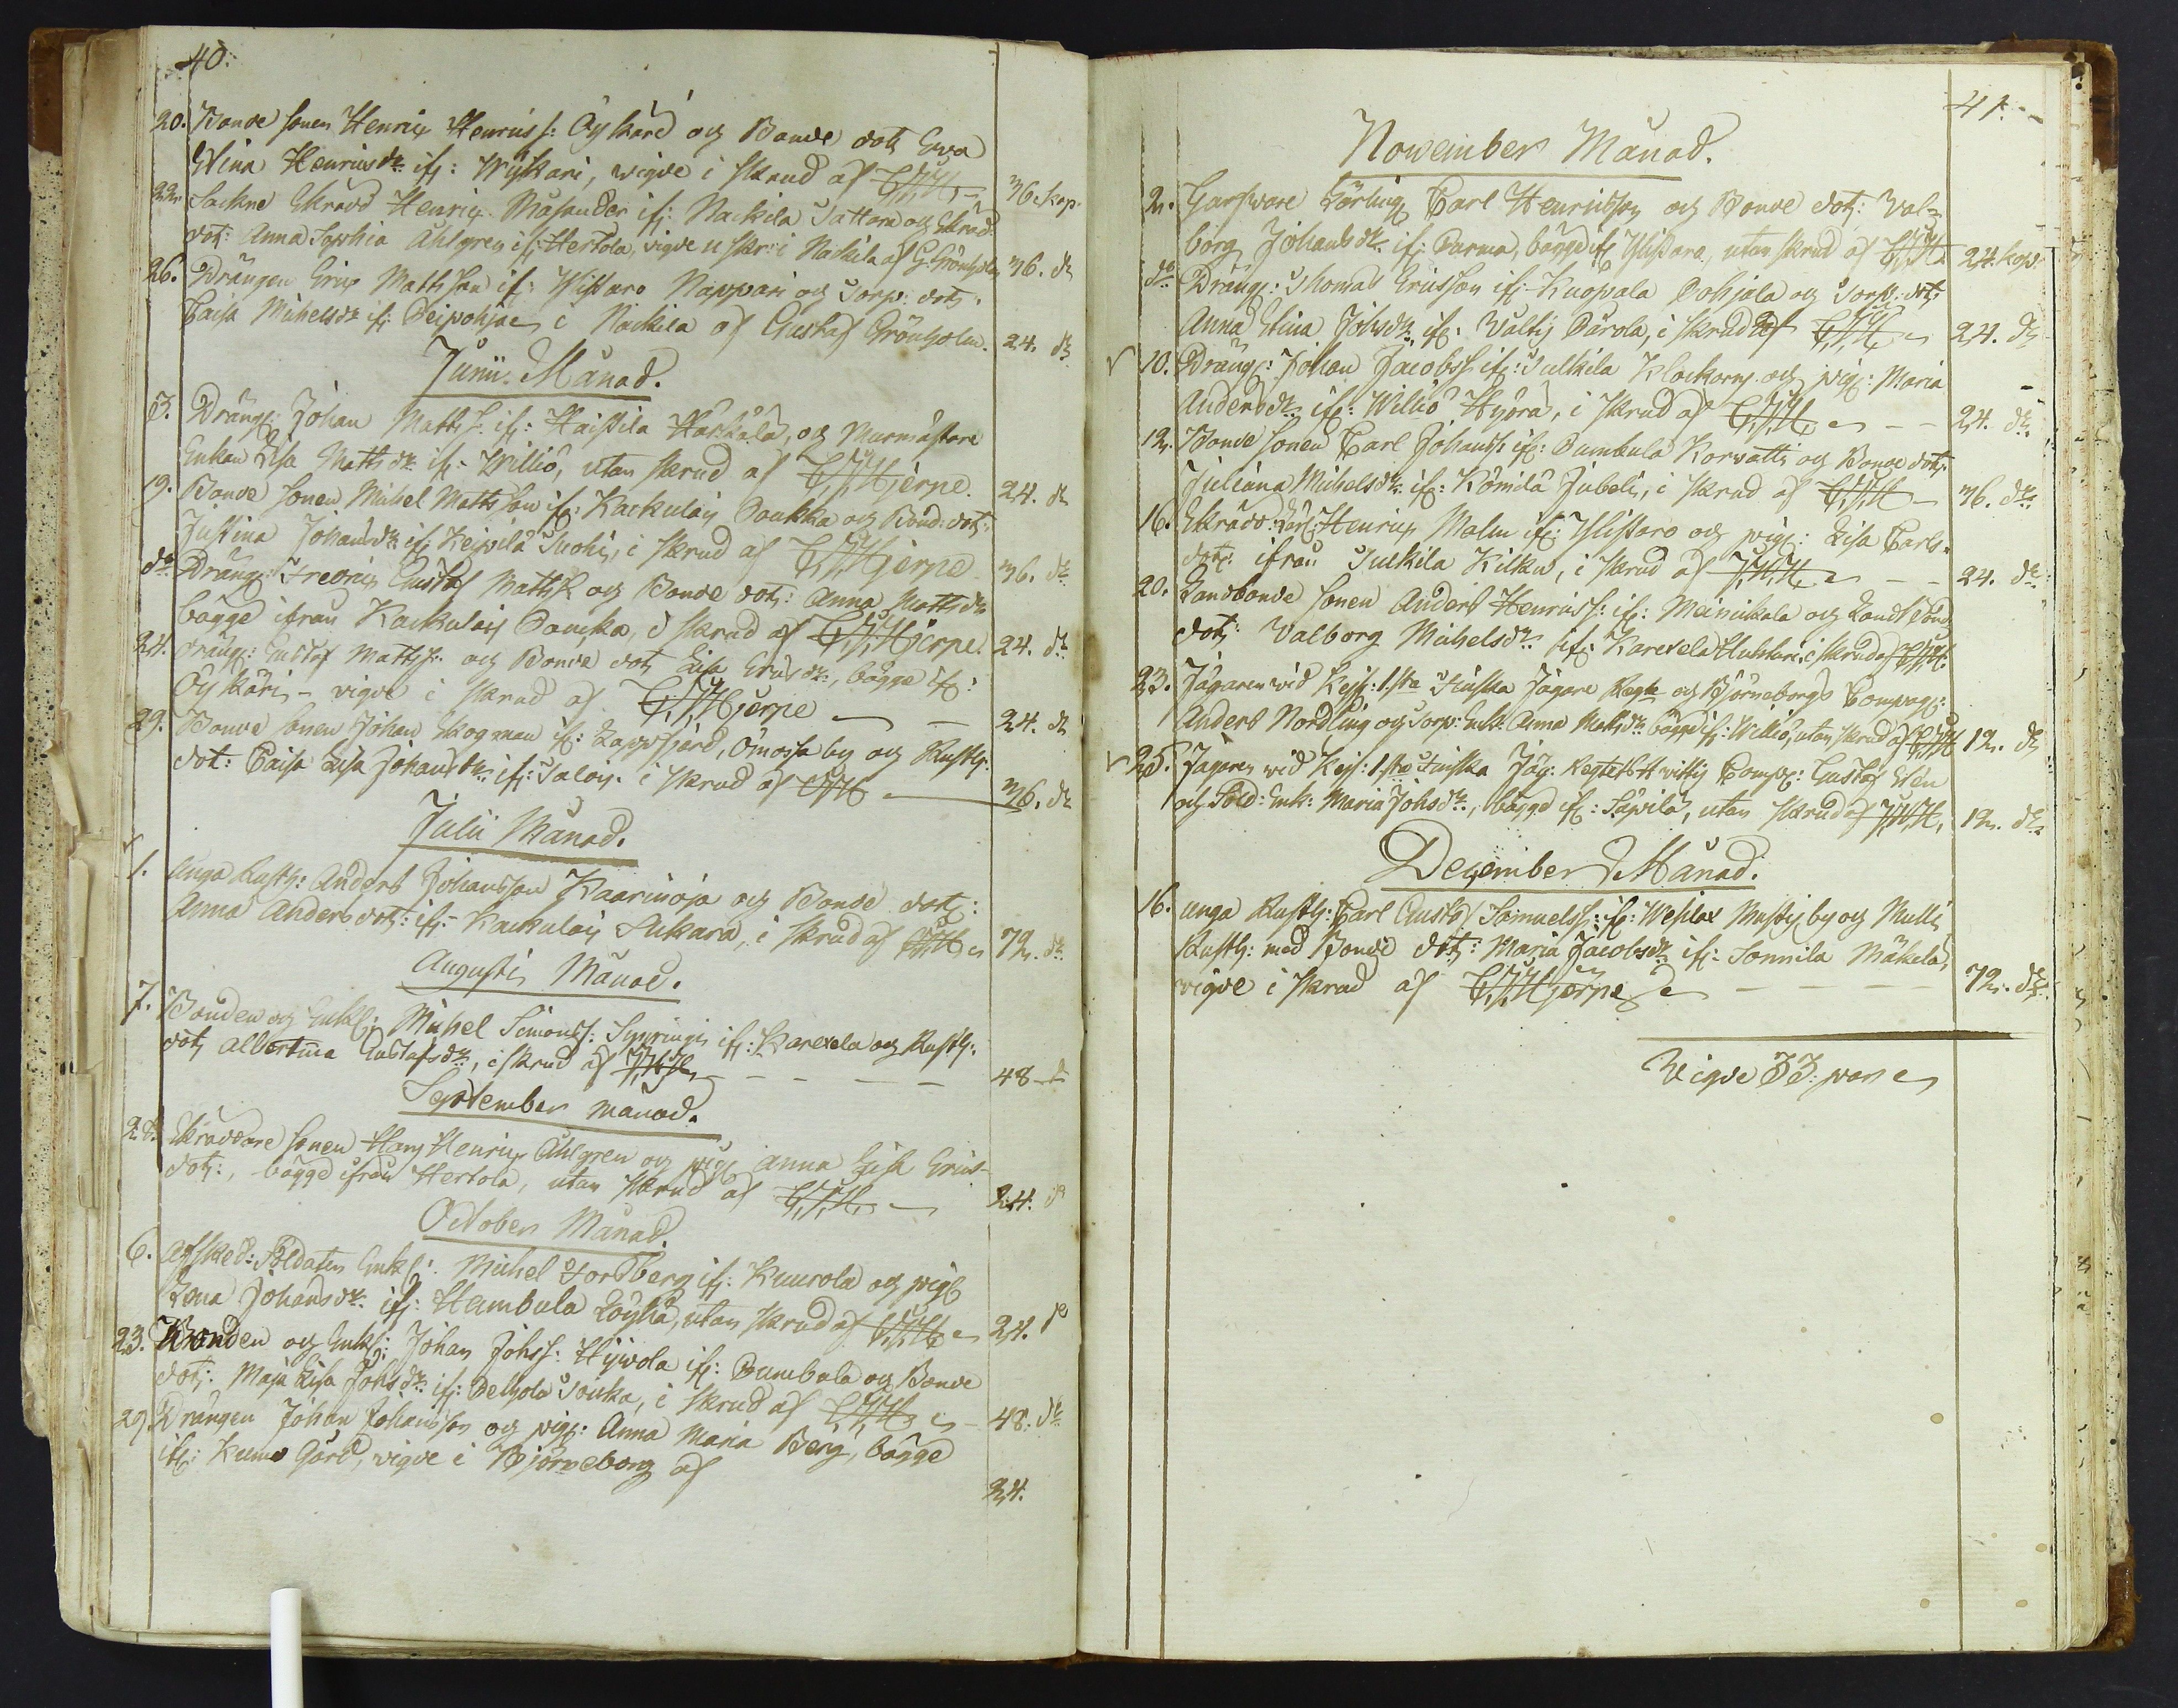 40.
20. Bonde sonen Henric Henrics: Öyskäri och Bonde dotr Ewa
Stina Henricsdr ifr: Wyskari, vigde i skrud af CGHjerpe 36. kop.
22. Sockne Skrädd Henric Masander ifr: Nackila Sattara och Skrädd:
dotr: Anna Sophia Åhlgren ifr: Hertola, vigde u skr: i Nackila af G: Grönholm 36. dr
26. Drängen Eric Mattsson ifr: Yliståro Nappari och Torp: dotr:
Caisa Michelsdr ifr: Peipohja, i Nackila af Gustaf Grönholm. 24. dr
Junii Månad.
3. Dräng: Johan Matts: ifr: Haistila Härkälä, och Murmästare
Enkan Lisa Mattsdr ifr: Williö, utan skrud af Hjerpe. 24. dr
19. Bonde sonen Michel Mattsson ifr: Kackulais Paukka och Bond: dotr:
Justina Johansdr ifr: Leipilä Juchi, i skrud af Hjerpe 36. dr
do Dräng: Fredric Gustaf Mattss: och Bonde dotr: Anna Mattsdr
bägge ifrån Kackulais Paucka, i skrud af Hjerpe. 24. dr
24. Dräng: Gustaf Mattss: och Bonde dotr Lisa Ericsdr, bägge ifr:
Öyskäri - vigde i skrud af Hjerpe 24. dr
29. Bonde sonen Johan Skogman ifr: Lappfjärd, Ömossa by och Rusth:
dot: Caisa Lisa Johansdr ifr: Salois. i skrud af 36. dr
Julii Månad.
1. Unga Rusth: Anders Johansson Kaarinoja och Bonde dotr:
Anna Andersdotr: ifr: Kackulais Sukara, i skrud af 72. dr
Augusti Månad.
7. Bonden och Enkl: Michel Simonss: Sippringi ifr: Harexela och Rusth:
dotr Albertina Gustafsdr, i skrud af 48 dr
September månad.
24. Skräddare sonen Hans Henric Åhlgren och pig: Anna Lisa Erics-
dotr:, bägge ifrån Hertola, utan skrud af 24. dr
October Månad.
6. Afsked: Soldaten Enkl: Michel Forsberg ifr: Kuurola och pig:
Lena Johansdr ifr: Hambula Löyhä, utan skrud af 24. dr
23. Bonden och Enkl: Johan Johss: Hyvola ifr: Sumbula och Bonde
dotr: Maja Lisa Johsdr ifr: Pelhola Touka, i skrud af 48. dr
29. Drängen Johan Johansson och pig: Anna Maria Berg, bägge
ifr: Kumo Gård, vigde i Björneborg af
24.
41.
Nowember Månad.
2. Garfvare Lärling Carl Henricsson och Bonde dotr: Val-
borg Johansdr ifr: Parma, bägge ifr Yliståro, utan skrud af 24. kop.
do Dräng: Thomas Ericsson ifr: Kuopala Pohjala och Torp: dotr
Anna Stina Johsdr ifr: Waltij Pärola, i skrud af 24. dr
10. Dräng: Johan Jacobss: ifr: Sulkila Klockars och pig: Maria
Andersdr ifr: Williö Hyörä, i skrud af 24. dr
12. Bonde sonen Carl Johanss: ifr: Sumbula Korvatti och Bonde dotr:
Juliana Michelsdr ifr: Kömilä Jubeli, i skrud af 36. dr
16. Skrädd: Lärl: Henric Malm ifr: Yliståro och pig: Lisa Carls-
dotr: ifrån Sulkila Kilku, i skrud af 24. dr
20. Landbonde sonen Anders Henricss: ifr: Meinikala och Landbond
dotr: Valborg Michelsdr ifr: Karexela Huhtari, i skrud af
23. Jägaren wid Kejs: 1sta Finska Jägare Regte och Björneborgs Compag:
Anders Nordling och Torp: Enk: Anna Matsdr bägge ifr: Williö, utan skrud af 12. dr
25. Jägaren wid Kejs: 1sta Finska Jäg: Regtets Hwittis Comp: Gustaf Sten
och Sold: Enk: Maria Johsdr, bägge ifr: Säpilä, utan skrud af 12. dr
December Månad.
16. unga Rusth: Carl Gustaf Samuelss: ifr: Westlax Mustijby och Mulli
Rusth: med Bonde dotr: Maria Jacobsdr ifr: Sonnila Mäkelä,
vigde i skrud af Hjerpe 72. dr
Vigde 33: par